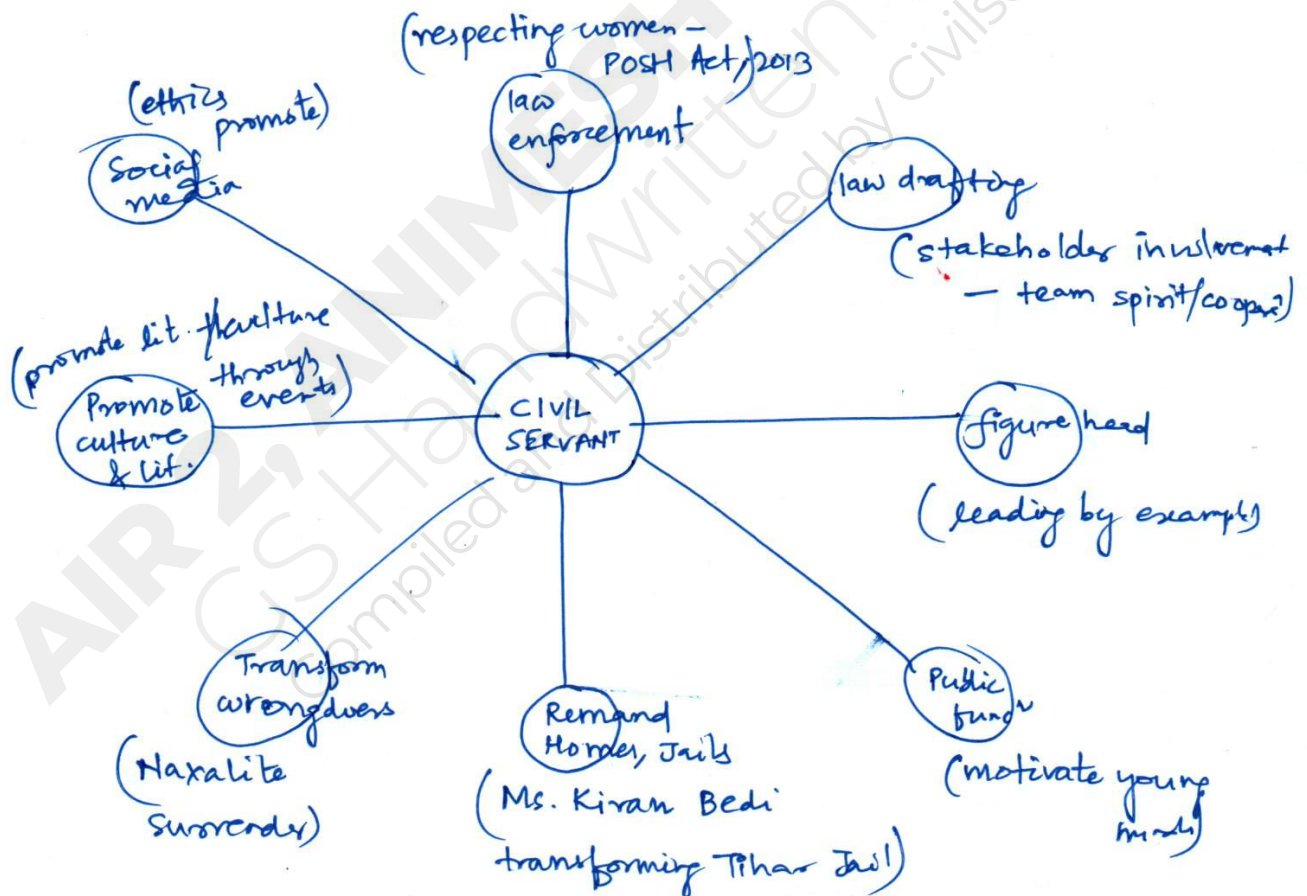 (respecting women –
POSH Act, 2013)
law
enforcement
(ethics
promote)
Social
media
law drafting
(stakeholder involvement
– team spirit/
(promote lit. &culture
through
events)
Promote
culture
& lit.
CIVIL
SERVANT
figure head
(leading by example)
Transform
wrongdoers
(Naxalite
surrender)
Remand
Homes, Jails
(Ms. Kiran Bedi
transforming Tihar Jail)
Public
(motivate young
minds)
AIR 2, ANIMESH
GS Handwritten
Compiled and Distributed by